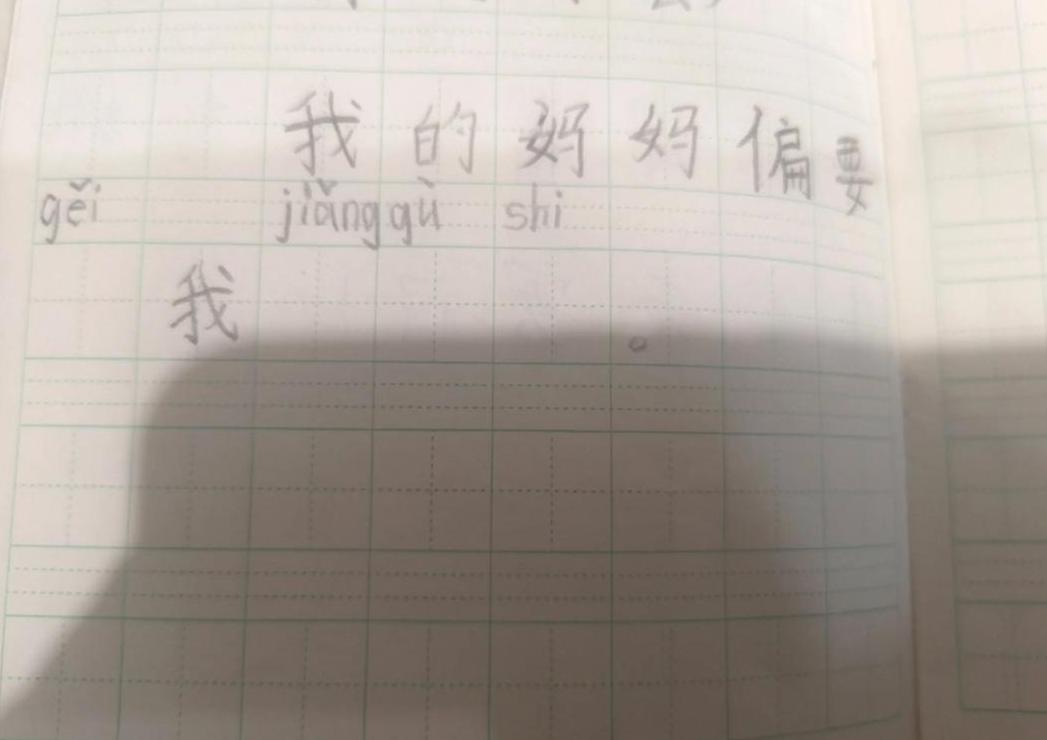 我的妈妈偏要
gěi jiǎng gù shi
我。